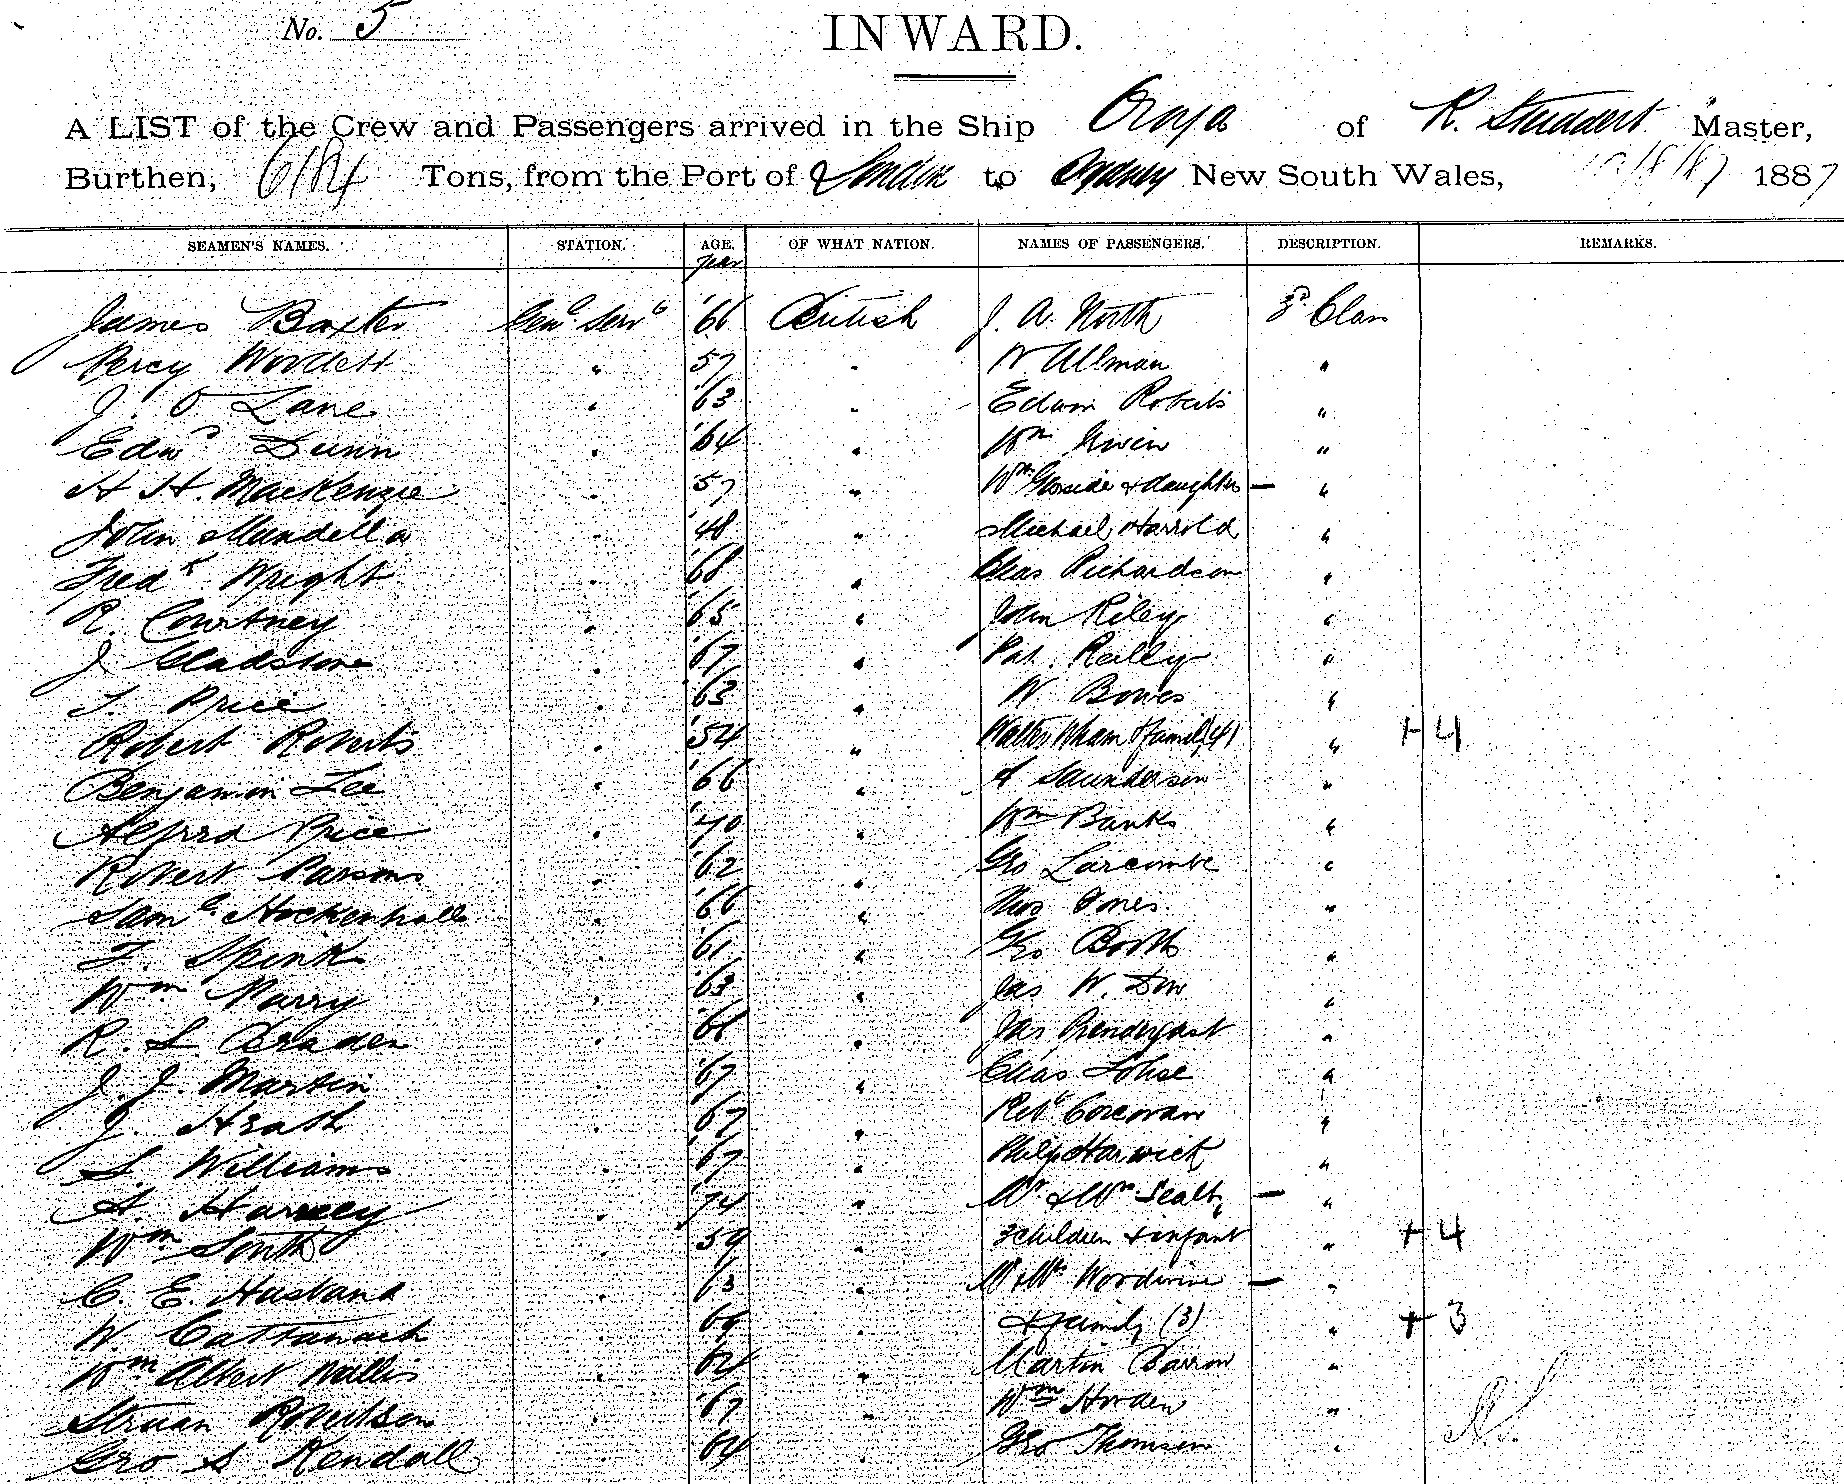 No. 5
INWARD.
A LIST of the Crew and Passengers arrived in the Ship Oroya of R. Studdert Master,
Burthen, 6184 Tons, from the Port of London to Sydney New South Wales, 1887
SEAMEN'S NAMES. STATION. AGE. OF WHAT NATION. NAMES OF PASSENGERS. DESCRIPTION. REMARKS.
year
James Baxter Genl Servt '66 British J. A. North 3d Class
Percy Woodett 57 " W Allman "
J. O Lane '63 " Edwin Roberts "
Edwd Dunn '64 " Wm "
H H. MacKenzie 57 " & daughter — "
John Mundella '48 " Michael Harrold "
Fredk Wright '68 " Chas Richardson "
R. Courtney '65 " John Riley "
J Gladstone '67 " Pat. Reilly "
T. Price '63 " W Bowes "
Robert Roberts '54 " Walter Wham & family (4) " +4
Benjamin Lee '66 " A Saunderson "
Alfred Price '70 " Wm Banks "
Robert Parsons '62 " Geo Larcombe "
Saml Hockenhall '66 " Thos Jones "
F. Spink '61 " Geo Booth "
Wm Parry '63 " Jas W. Dow "
R. S. Braden '66 " Jas Prendergast "
J. J. Martin '67 " Chas Lohse "
J. Heath '67 " Robt Corcoran "
S. Williams '67 " Philip Harwick "
A. Harvey '74 " Mr & Mrs — "
Wm South '59 " 3 children & infant " +4
C. E. Husband '63 " Mr & Mrs Woodwine — "
W. Cattanach '69 " & family (3) " +3
Wm Albert Wallis '64 " Martin Barrow "
Struan Robertson '67 " Wm Horden "
Geo S Kendall '64 " Geo Thomson "